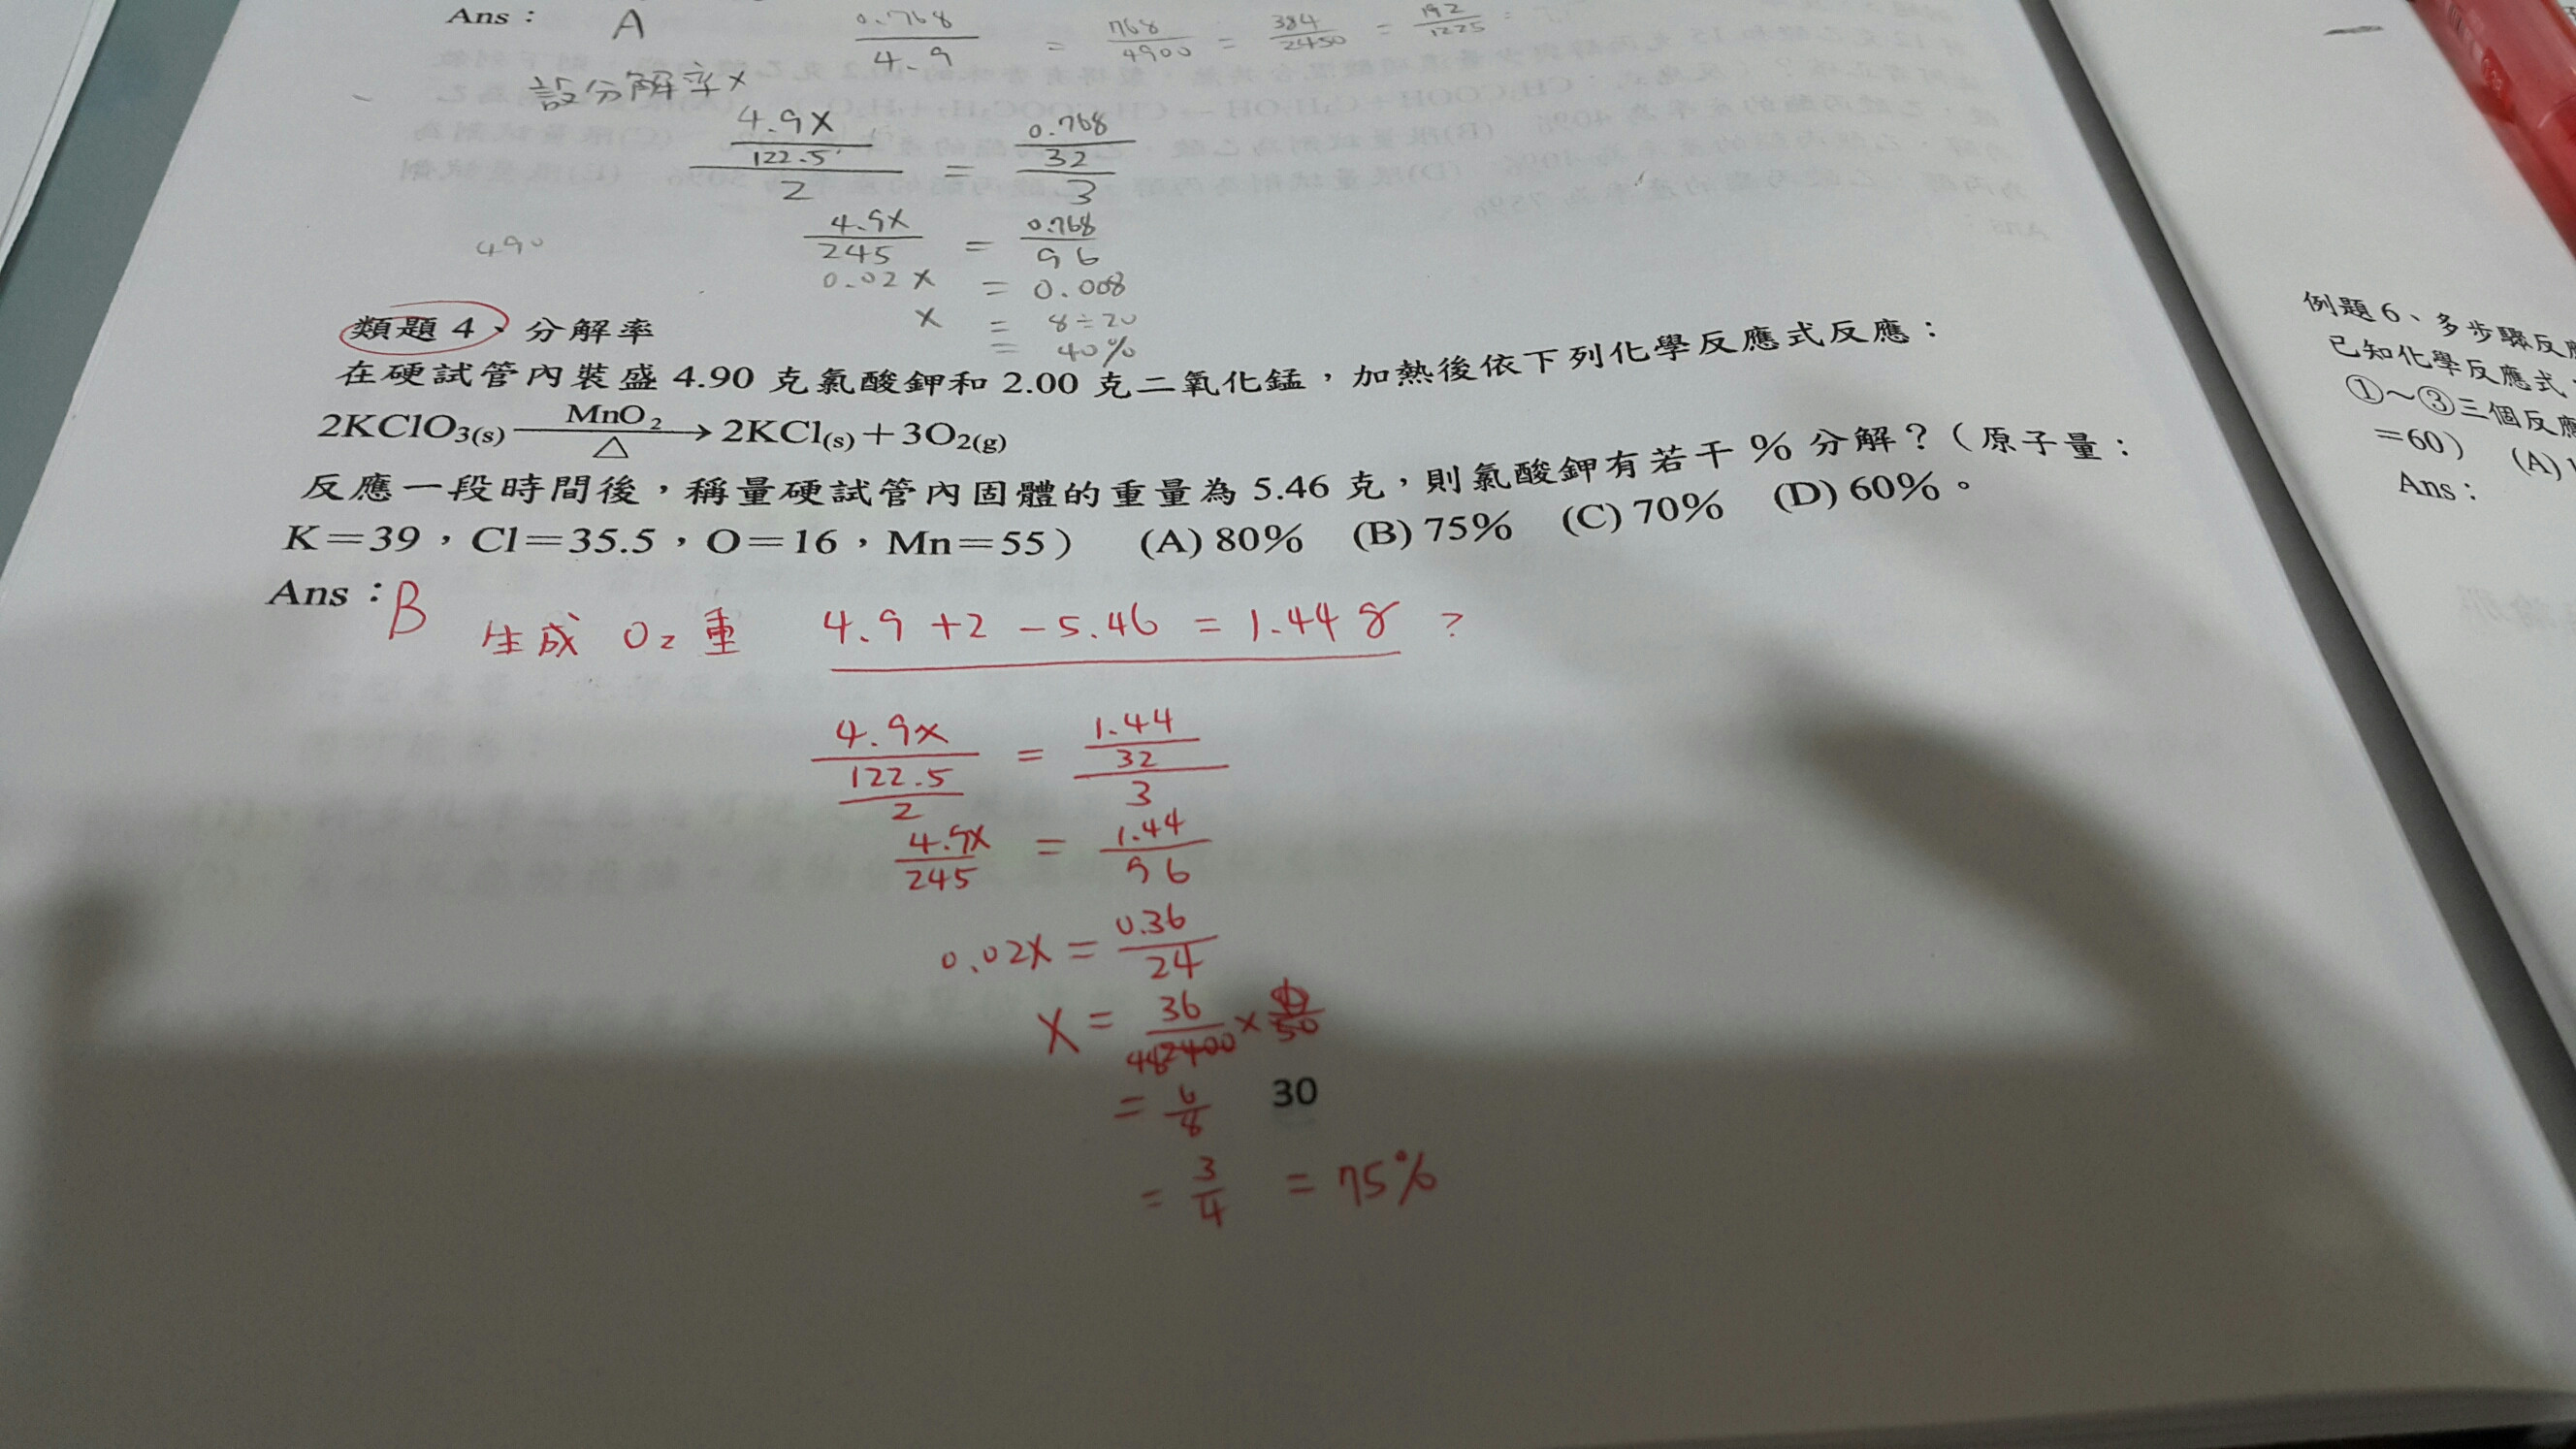 Ans： A
0.768/4.9 = 768/4900 = 384/2450 = 192/1225 =
設分解率x
(4.9x/122.5)/2 = (0.768/32)/3
4.9x/245 = 0.768/96
490
0.02x = 0.008
x = 8÷20
= 40%
類題4、分解率
在硬試管內裝盛 4.90 克氯酸鉀和 2.00 克二氧化錳，加熱後依下列化學反應式反應：
2KClO3(s) MnO2 △ → 2KCl(s)＋3O2(g)
反應一段時間後，稱量硬試管內固體的重量為 5.46 克，則氯酸鉀有若干 % 分解？（原子量：
K＝39，Cl＝35.5，O＝16，Mn＝55） (A) 80% (B) 75% (C) 70% (D) 60%。
Ans：B
生成 O2 重 4.9 + 2 - 5.46 = 1.44 g ?
4.9x/122.5/2 = 1.44/32/3
4.9x/245 = 1.44/96
0.02x = 0.36/24
x = 36/48
= 6/8
30
= 3/4 = 75%
例題6、多步驟反應
已知化學反應式：
①～③三個反應
＝60） (A)
Ans：